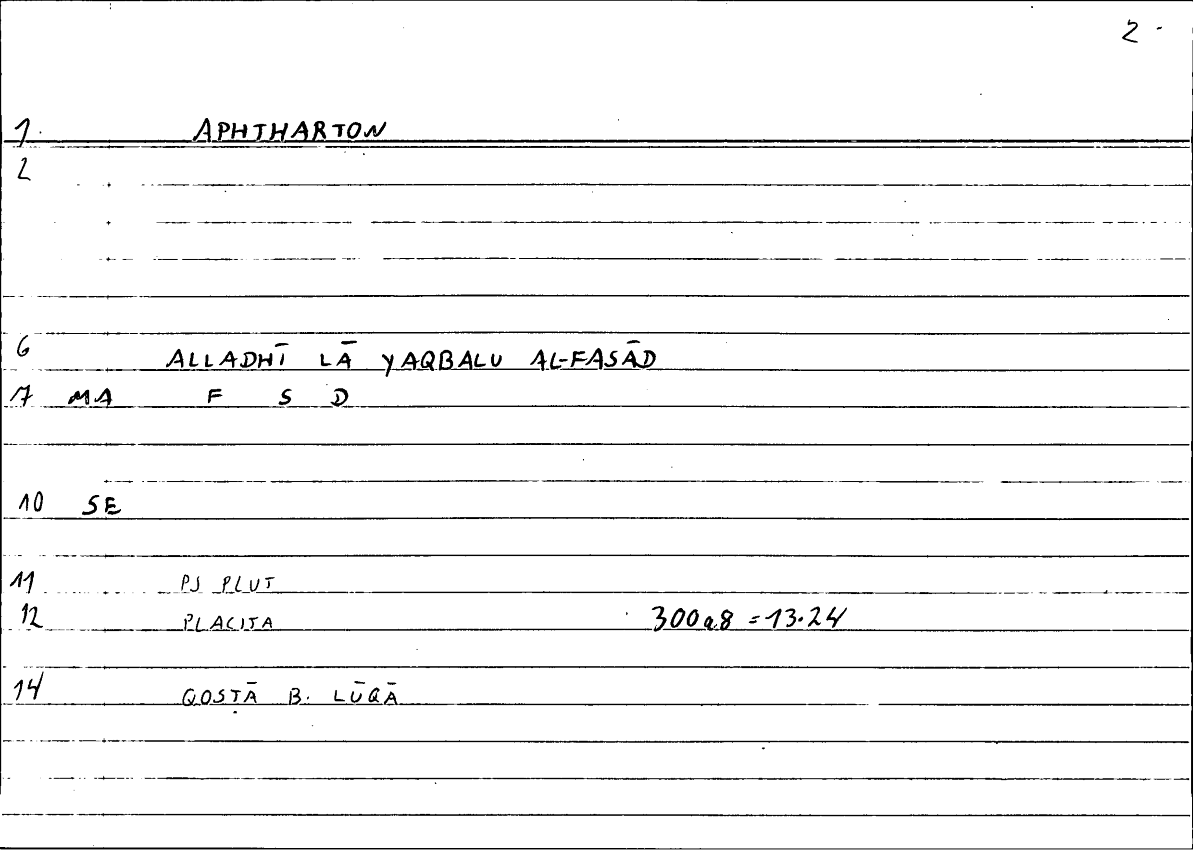 2 -
1. APHTHARTON
2
6 ALLADHĪ LĀ YAQBALU AL-FASĀD
7 MA F S D
10 SE
11 PS PLUT
12 PLACITA 300a8 = 13.24
14 QOSṬĀ B. LŪQĀ